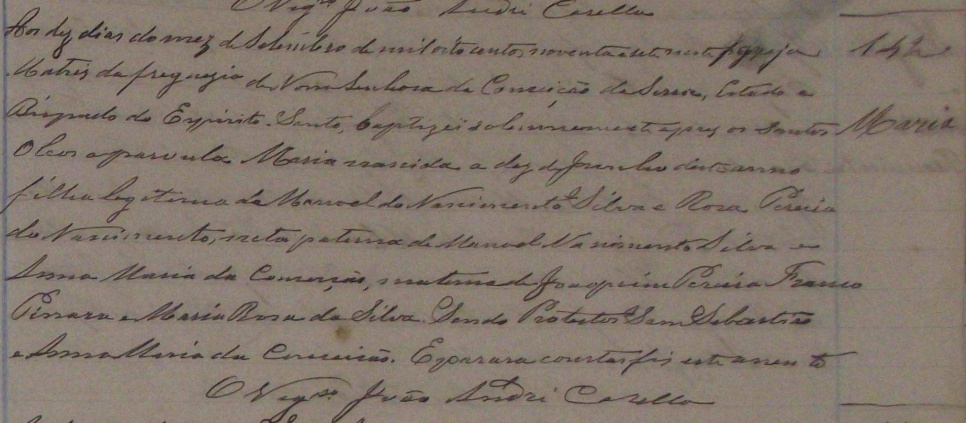 O Vigrº João André Casella
Aos dez dias do mez de Setembro de mil oito centos noventa e sete nesta Igreja 142
Matriz da freguezia de Nossa Senhora da Conceição da Serra, Estado e
Bispado do Espirito-Santo, baptizei solemnemente e puz os Santos Maria
Oleos a parvula Maria nascida a dez de Junho deste anno
filha legitima de Manoel do Nascimento Silva e Rosa Pereira
do Nascimento, neta paterna de Manoel Nascimento Silva e
Anna Maria da Conceição, materna de Joaquim Pereira Franco
e Maria Rosa da Silva. Sendo Protector Sam Sebastião
e Anna Maria da Conceição. E para constar fiz este assento
O Vigrº João André Casella